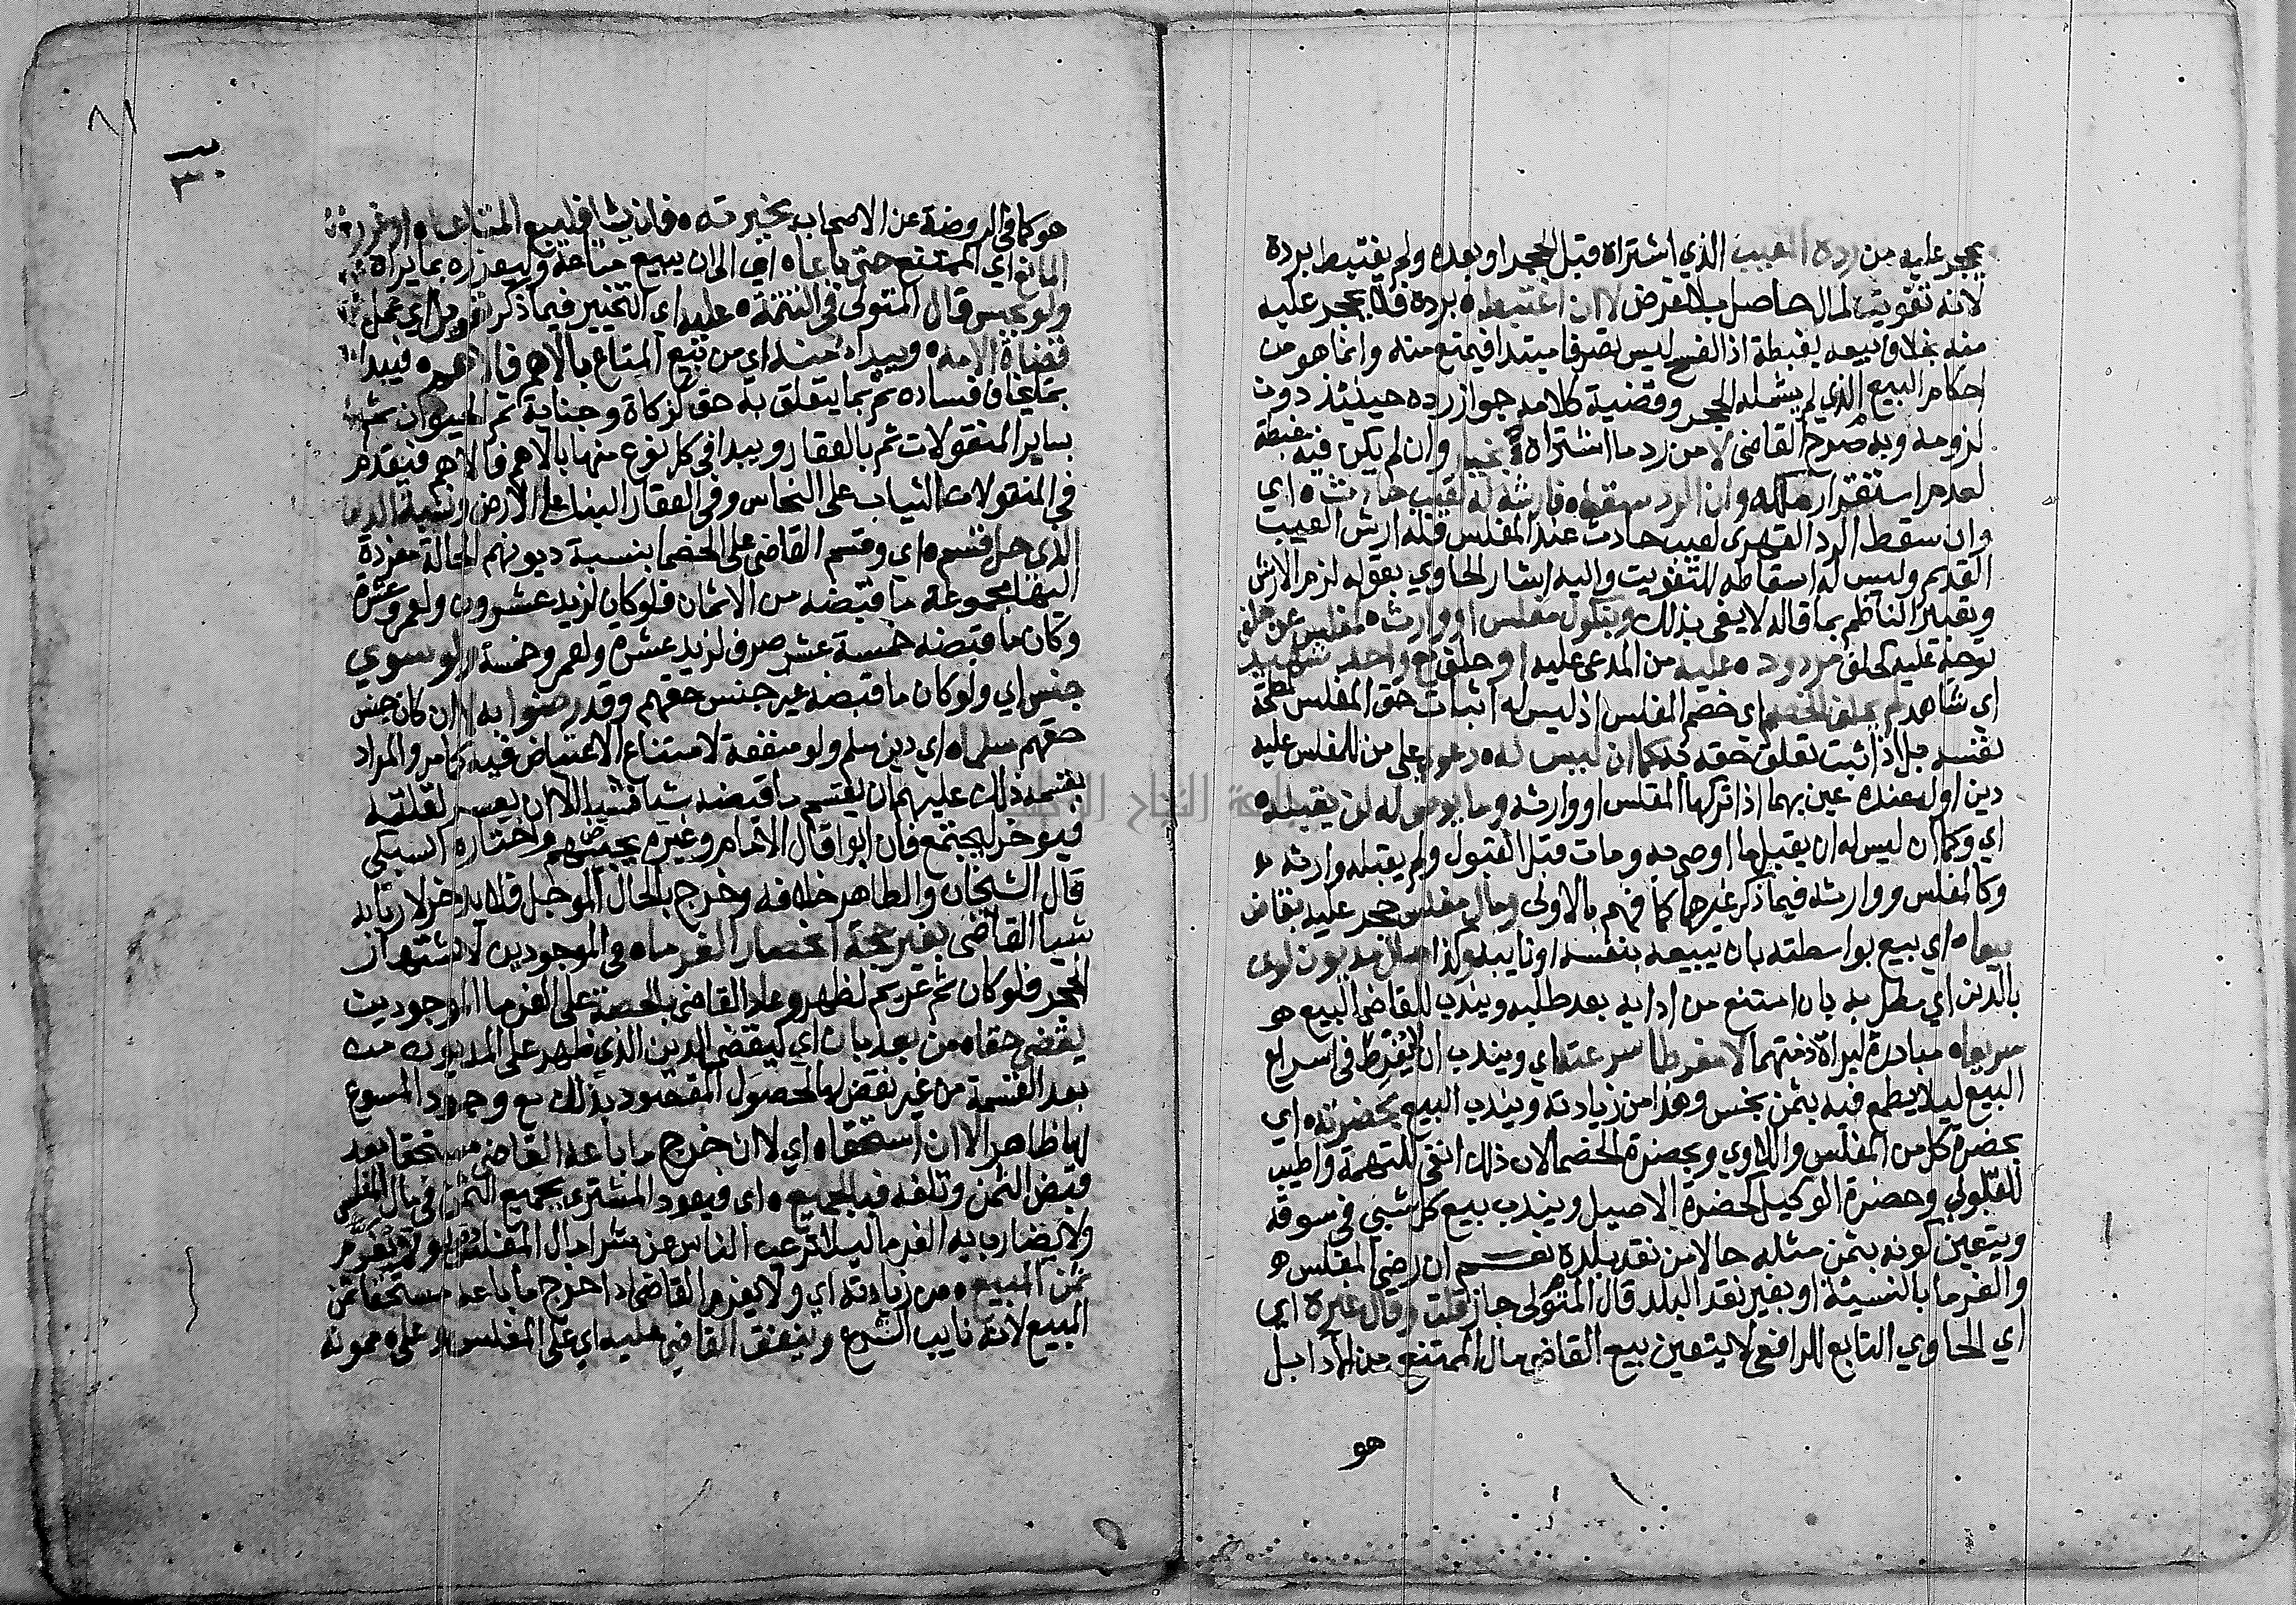 يحجر عليه من رده المعيب الذي اشتراه قبل الحجر او بعده ولم يغتبط برده
لانه تفويت لمال حاصل بلا غرض لا ان اغتبط ه برده فلا يحجر عليه
منه بخلاف بيعه بغبطة اذ الفسخ ليس تصرفا مبتدا فيمتنع منه وانما هو من
احكام البيع الذي لم يشمله الحجر وقضية كلامه جواز رده حينئذ دون
لزومه وبه صرح القاضي لا من رد ما اشتراه بخيار وان لم يكن فيه غبطة
لعدم استقرار ملكه وان الرد سقط ه فارشه له لعيب حادث ه اي
وان سقط الرد القهري لعيب حادث عند المفلس فله ارش العيب
القديم وليس له اسقاطه للتفويت واليه اشار الحاوي بقوله لزم الارش
وتعبير الناظم بما قاله لا يفي بذلك وبنكول مفلس او وارث ه مفلس عن حلف
توجه عليه كحلف مردود ه عليه من المدعى عليه او حلف مع واحد شهيد
اي شاهد لم يحلف الخصم اي خصم المفلس اذ ليس له اثبات حق المفلس لمصلحة
نفسه بل اذا ثبت تعلق حقه به كما ان ليس له ه دعوى على من للمفلس عليه
دين او له عنده عين بهما اذا تركها المفلس او وارثه وما يوصى له ان يقبله ه
اي وكما ان ليس له ان يقبل ما اوصي به ومات قبل القبول ولم يقبله وارثه
وكالمفلس ووارثه فيما ذكر غيرهما كما فهم بالاولى ومال مفلس حجر عليه بقاض
بيعا ه اي بيع بواسطته بان يبيعه بنفسه او نايبه وكذا مال مديون لوى
بالدين اي مطل به بان امتنع من ادايه بعد طلبه ويندب للقاضي البيع
سريعا ه مبادرة لبراة ذمتهما لا مفرطا سرعته اي ويندب ان لا يفرط في اسراع
البيع ليلا يطمع فيه بثمن بخس وهذا من زيادته ويندب البيع بحضرته ه اي
بحضرة كل من المفلس واللاوي وبحضرة الخصما لان ذلك انفى للتهمة واطيب
للقلوب وحضرة الوكيل كحضرة الاصيل ويندب بيع كل شي في سوقه
ويتعين كونه بثمن مثله حالا من نقد بلده نعم ان رضي المفلس
والغرما بالنسيئة او بغير نقد البلد قال المتولي جاز قلت وقال غيره اي
اي الحاوي التابع للرافعي لا يتعين بيع القاضي مال الممتنع من الادا بل
هو
هو كما في الروضة عن الاصحاب بخيرته ه فان يشا فليبع المتاعا ه او
المانع اي الممتنع حتى باعا ه اي الى ان يبيع متاعه وليعزره بما يراه
ولو بحبس قال المتولي في التتمة ه عليه اي التخيير فيما ذكر اي عمل
قضاة الامه ه ويبدا ه منه اي من بيع المتاع بالاهم فالاهم ه فيبدا
بما يخاف فساده ثم بما يتعلق به حق كزكاة وجناية ثم الحيوان ثم
بساير المنقولات ثم بالعقار ويبدا في كل نوع منها بالاهم فالاهم فيقدم
في المنقولات الثياب على النحاس وفي العقار البنا على الارض ونسبة الدين
الذي حل قسم ه اي وقسم القاضي على الخصما بنسبة ديونهم الحالة مفردة
اليها مجموعة ما قبضه من الاثمان فلو كان لزيد عشرون ولعمرو عشرة
وكان ما قبضه خمسة عشر صرف لزيد عشرة ولعمرو خمسة ولو سوي
جنس اي ولو كان ما قبضه غير جنس حقهم وقد رضوا به الا ان كان جنس
حقهم سلما ه اي دين سلم ولو منفعة لامتناع الاعتياض فيه كما مر والمراد
بقسمه ذلك عليهم ان يقسم ما قبضه شيا فشيا الا ان يعسر لقلته
فيوخر ليجتمع فان ابوا قال الامام وغيره يجيبهم واختاره السبكي
قال الشيخان والظاهر خلافه وخرج بالحال الموجل فلا يدخر لاربابه
شيا القاضي بغير حجة انحصار الغرما ه في الموجودين لاشتهار
الحجر فلو كان ثم غريم لظهر وعاد القاضي بالحصة على الغرما الموجودين
يقضي حقا ه من بعد بان اي ليقضي الدين الذي ظهر على المديون من
بعد القسمة من غير نقض لها لحصول المقصود بذلك مع وجود المسوغ
لها ظاهرا الا ان استحقا ه اي لا ان خرج ما باعه القاضي مستحقا بعد
قبض الثمن وتلفه فبالجميع ه اي فيعود المشتري بجميع الثمن في مال المفلس
ولا يضارب به الغرما ليلا ترغب الناس عن شرا مال المفلس ولا يغرم
ثمن المبيع ه من زيادته اي ولا يغرم القاضي اذا خرج ما باعه مستحقا ثمن
المبيع لانه نايب الشرع وينفق القاضي عليه اي على المفلس وعلى ه ممونه